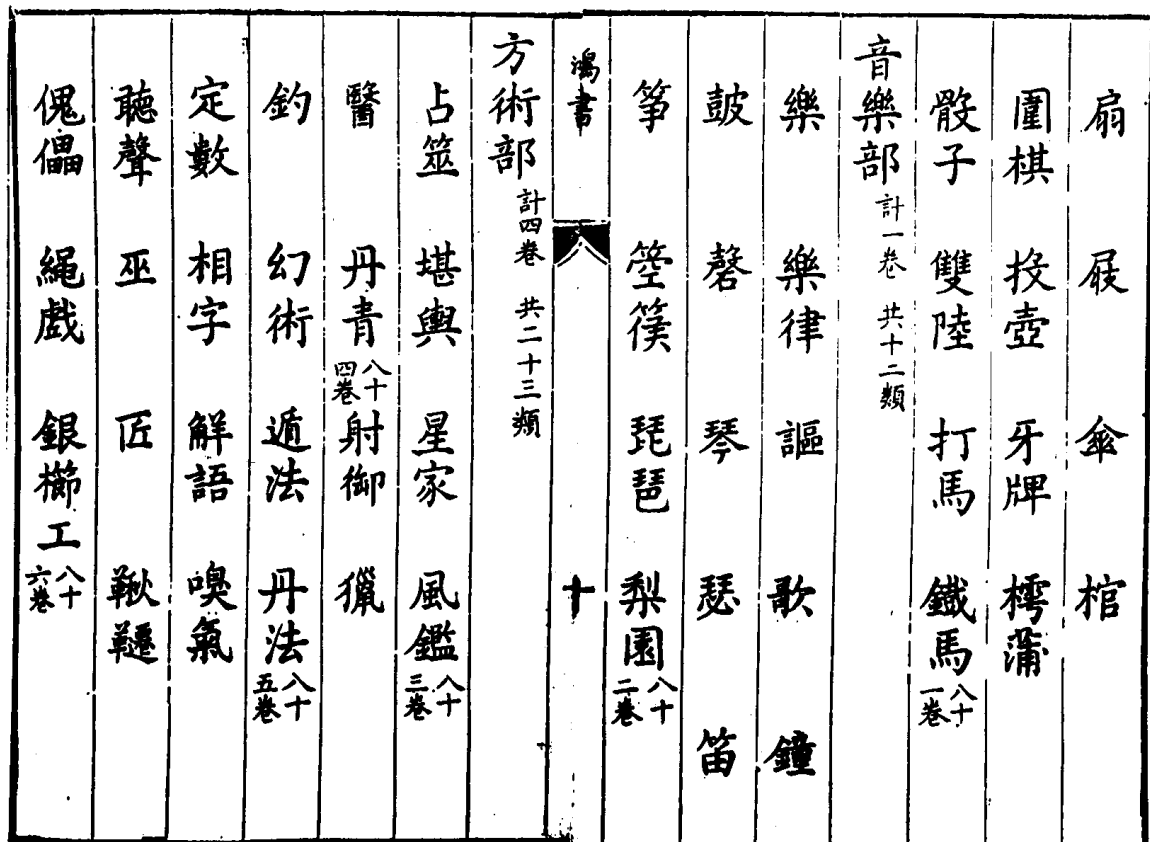 扇 屐 傘 棺
圍棋 投壺 牙牌 樗蒲
骰子 雙陸 打馬 鐵馬 八十一卷
音樂部 計一卷 共十二類
樂 樂律 謳 歌 鐘
鼓 磬 琴 瑟 笛
箏 箜篌 琵琶 梨園 八十二卷
鴻書 十
方術部 計四卷 共二十三類
占筮 堪輿 星家 風鑑 八十三卷
醫 丹青 八十四卷 射御 獵
釣 幻術 遁法 丹法 八十五卷
定數 相字 解語 嗅氣
聽聲 巫 匠 鞦韆
傀儡 繩戲 銀櫛工 八十六卷